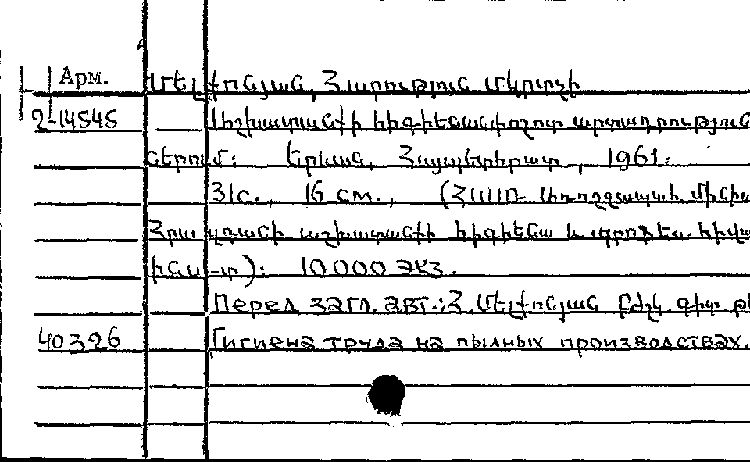 Арм. Մելքոնյան, Հարություն Մկրտչի
2-14545 Աշխատանքի հիգիենան փոշոտ արտադրություն
ներում: Երևան, Հայպետհրատ, 1961.
31с., 16 см., (ՀՍՍՌ Առողջապահ. մինիս
Հրա աշխատանքի հիգիենա և պրոֆես. հիվ
ինս-տ): 10000 экз.
Перед загл. авт.: Հ. Մելքոնյան բժշկ. գիտ. թ
40326 Гигиена труда на пыльных производствах.